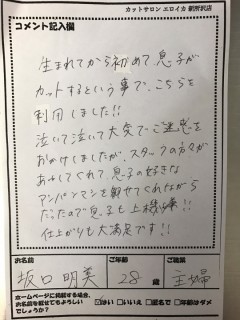 カットサロン エロイカ 新所沢店
コメント記入欄
生まれてから初めて、息子が
カットするという事で、こちらを
利用しました!!
泣いて泣いて大変でご迷惑を
おかけしましたが、スタッフの方々が
あやしてくれて、息子の好きな
アンパンマンを観せてくれながら
だったので息子も上機嫌!!
仕上がりも大満足です!!
お名前
坂口明美
ご年齢
28歳
ご職業
主婦
ホームページに掲載する場合、
お名前を載せてもよろしい
でしょうか?
はい
いいえ
匿名で
年齢はダメ